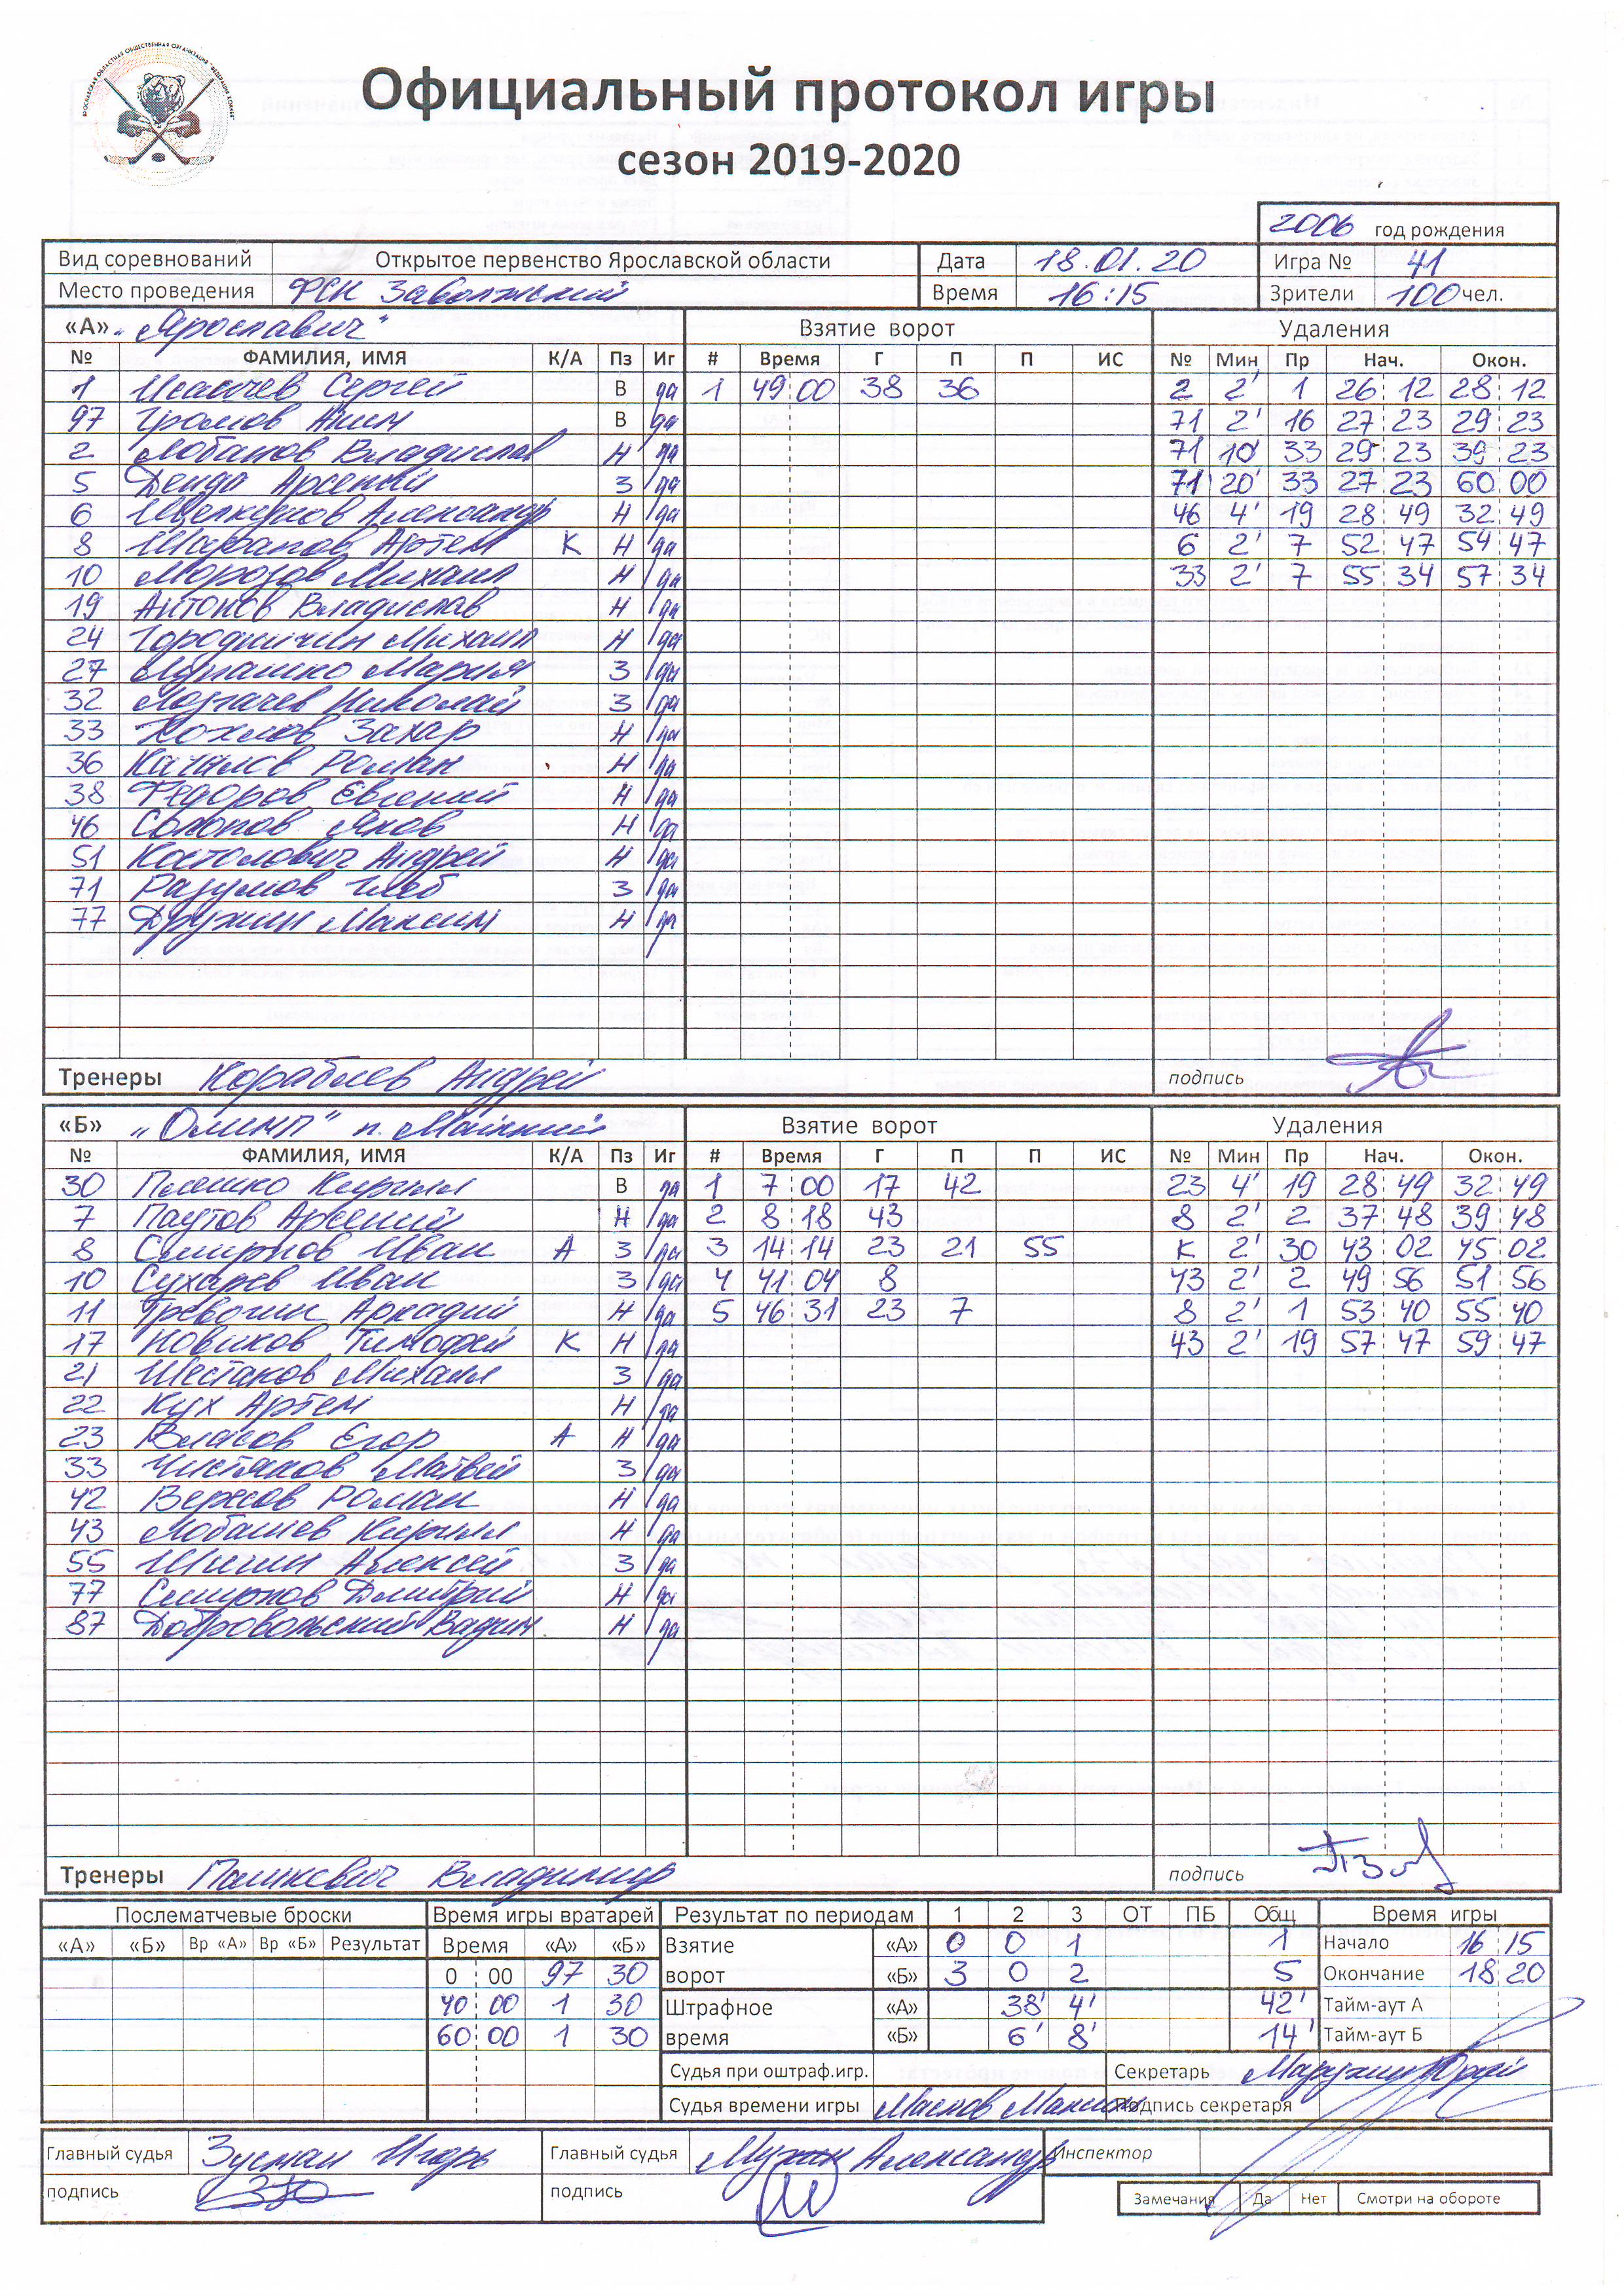 ЯРОСЛАВСКАЯ ОБЛАСТНАЯ ОБЩЕСТВЕННАЯ ОРГАНИЗАЦИЯ "ФЕДЕРАЦИЯ ХОККЕЯ"
Официальный протокол игры
сезон 2019-2020
2006 год рождения
Вид соревнований Открытое первенство Ярославской области Дата 18.01.20 Игра № 41
Место проведения ФСК Заволжский Время 16:15 Зрители 100 чел.
«А» "Ярославич" Взятие ворот Удаления
№ ФАМИЛИЯ, ИМЯ К/А Пз Иг # Время Г П П ИС № Мин Пр Нач. Окон.
1 Исаичев Сергей В да 1 49 00 38 36 2 2' 1 26 12 28 12
97 Громов Аким В да 71 2' 16 27 23 29 23
2 Лобанов Владислав Н да 71 10' 33 29 23 39 23
5 Денда Арсений З да 71 20' 33 27 23 60 00
6 Щелкунов Александр Н да 46 4' 19 28 49 32 49
8 Шарапов Артем К Н да 6 2' 7 52 47 54 47
10 Морозов Михаил Н да 33 2' 7 55 34 57 34
19 Антонов Владислав Н да
24 Городничин Михаил Н да
27 Мурашко Мария З да
32 Логачев Николай З да
33 Хохлов Захар Н да
36 Качалов Роман Н да
38 Федоров Евгений Н да
46 Солопов Яков Н да
51 Костолович Андрей Н да
71 Разумов Глеб З да
77 Дружин Максим Н да
Тренеры Кораблев Андрей подпись
«Б» "Олимп" п. Майский Взятие ворот Удаления
№ ФАМИЛИЯ, ИМЯ К/А Пз Иг # Время Г П П ИС № Мин Пр Нач. Окон.
30 Плешко Кирилл В да 1 7 00 17 42 23 4' 19 28 49 32 49
7 Паутов Арсений Н да 2 8 18 43 8 2' 2 37 48 39 48
8 Смирнов Иван А З да 3 14 14 23 21 55 К 2' 30 43 02 45 02
10 Сухарев Иван З да 4 41 04 8 43 2' 2 49 56 51 56
11 Тревогин Аркадий Н да 5 46 31 23 7 8 2' 1 53 40 55 40
17 Новиков Тимофей К Н да 43 2' 19 57 47 59 47
21 Шестаков Михаил З да
22 Кух Артем Н да
23 Власов Егор А Н да
33 Чистяков Матвей З да
42 Верхов Роман Н да
43 Лобашев Кирилл Н да
55 Шишин Алексей З да
77 Смирнов Дмитрий Н да
87 Добровольский Вадим Н да
Тренеры Пашкевич Владимир подпись
Послематчевые броски Время игры вратарей Результат по периодам 1 2 3 ОТ ПБ Общ Время игры
«А» «Б» Вр «А» Вр «Б» Результат Время «А» «Б» Взятие «А» 0 0 1 1 Начало 16 15
0 00 97 30 ворот «Б» 3 0 2 5 Окончание 18 20
40 00 1 30 Штрафное «А» 38' 4' 42' Тайм-аут А
60 00 1 30 время «Б» 6' 8' 14' Тайм-аут Б
Судья при оштраф.игр. Секретарь Марухин Юрий
Судья времени игры Маслов Максим Подпись секретаря
Главный судья Зусман Игорь Главный судья Мухин Александр Инспектор
подпись подпись
Замечания Да Нет Смотри на обороте